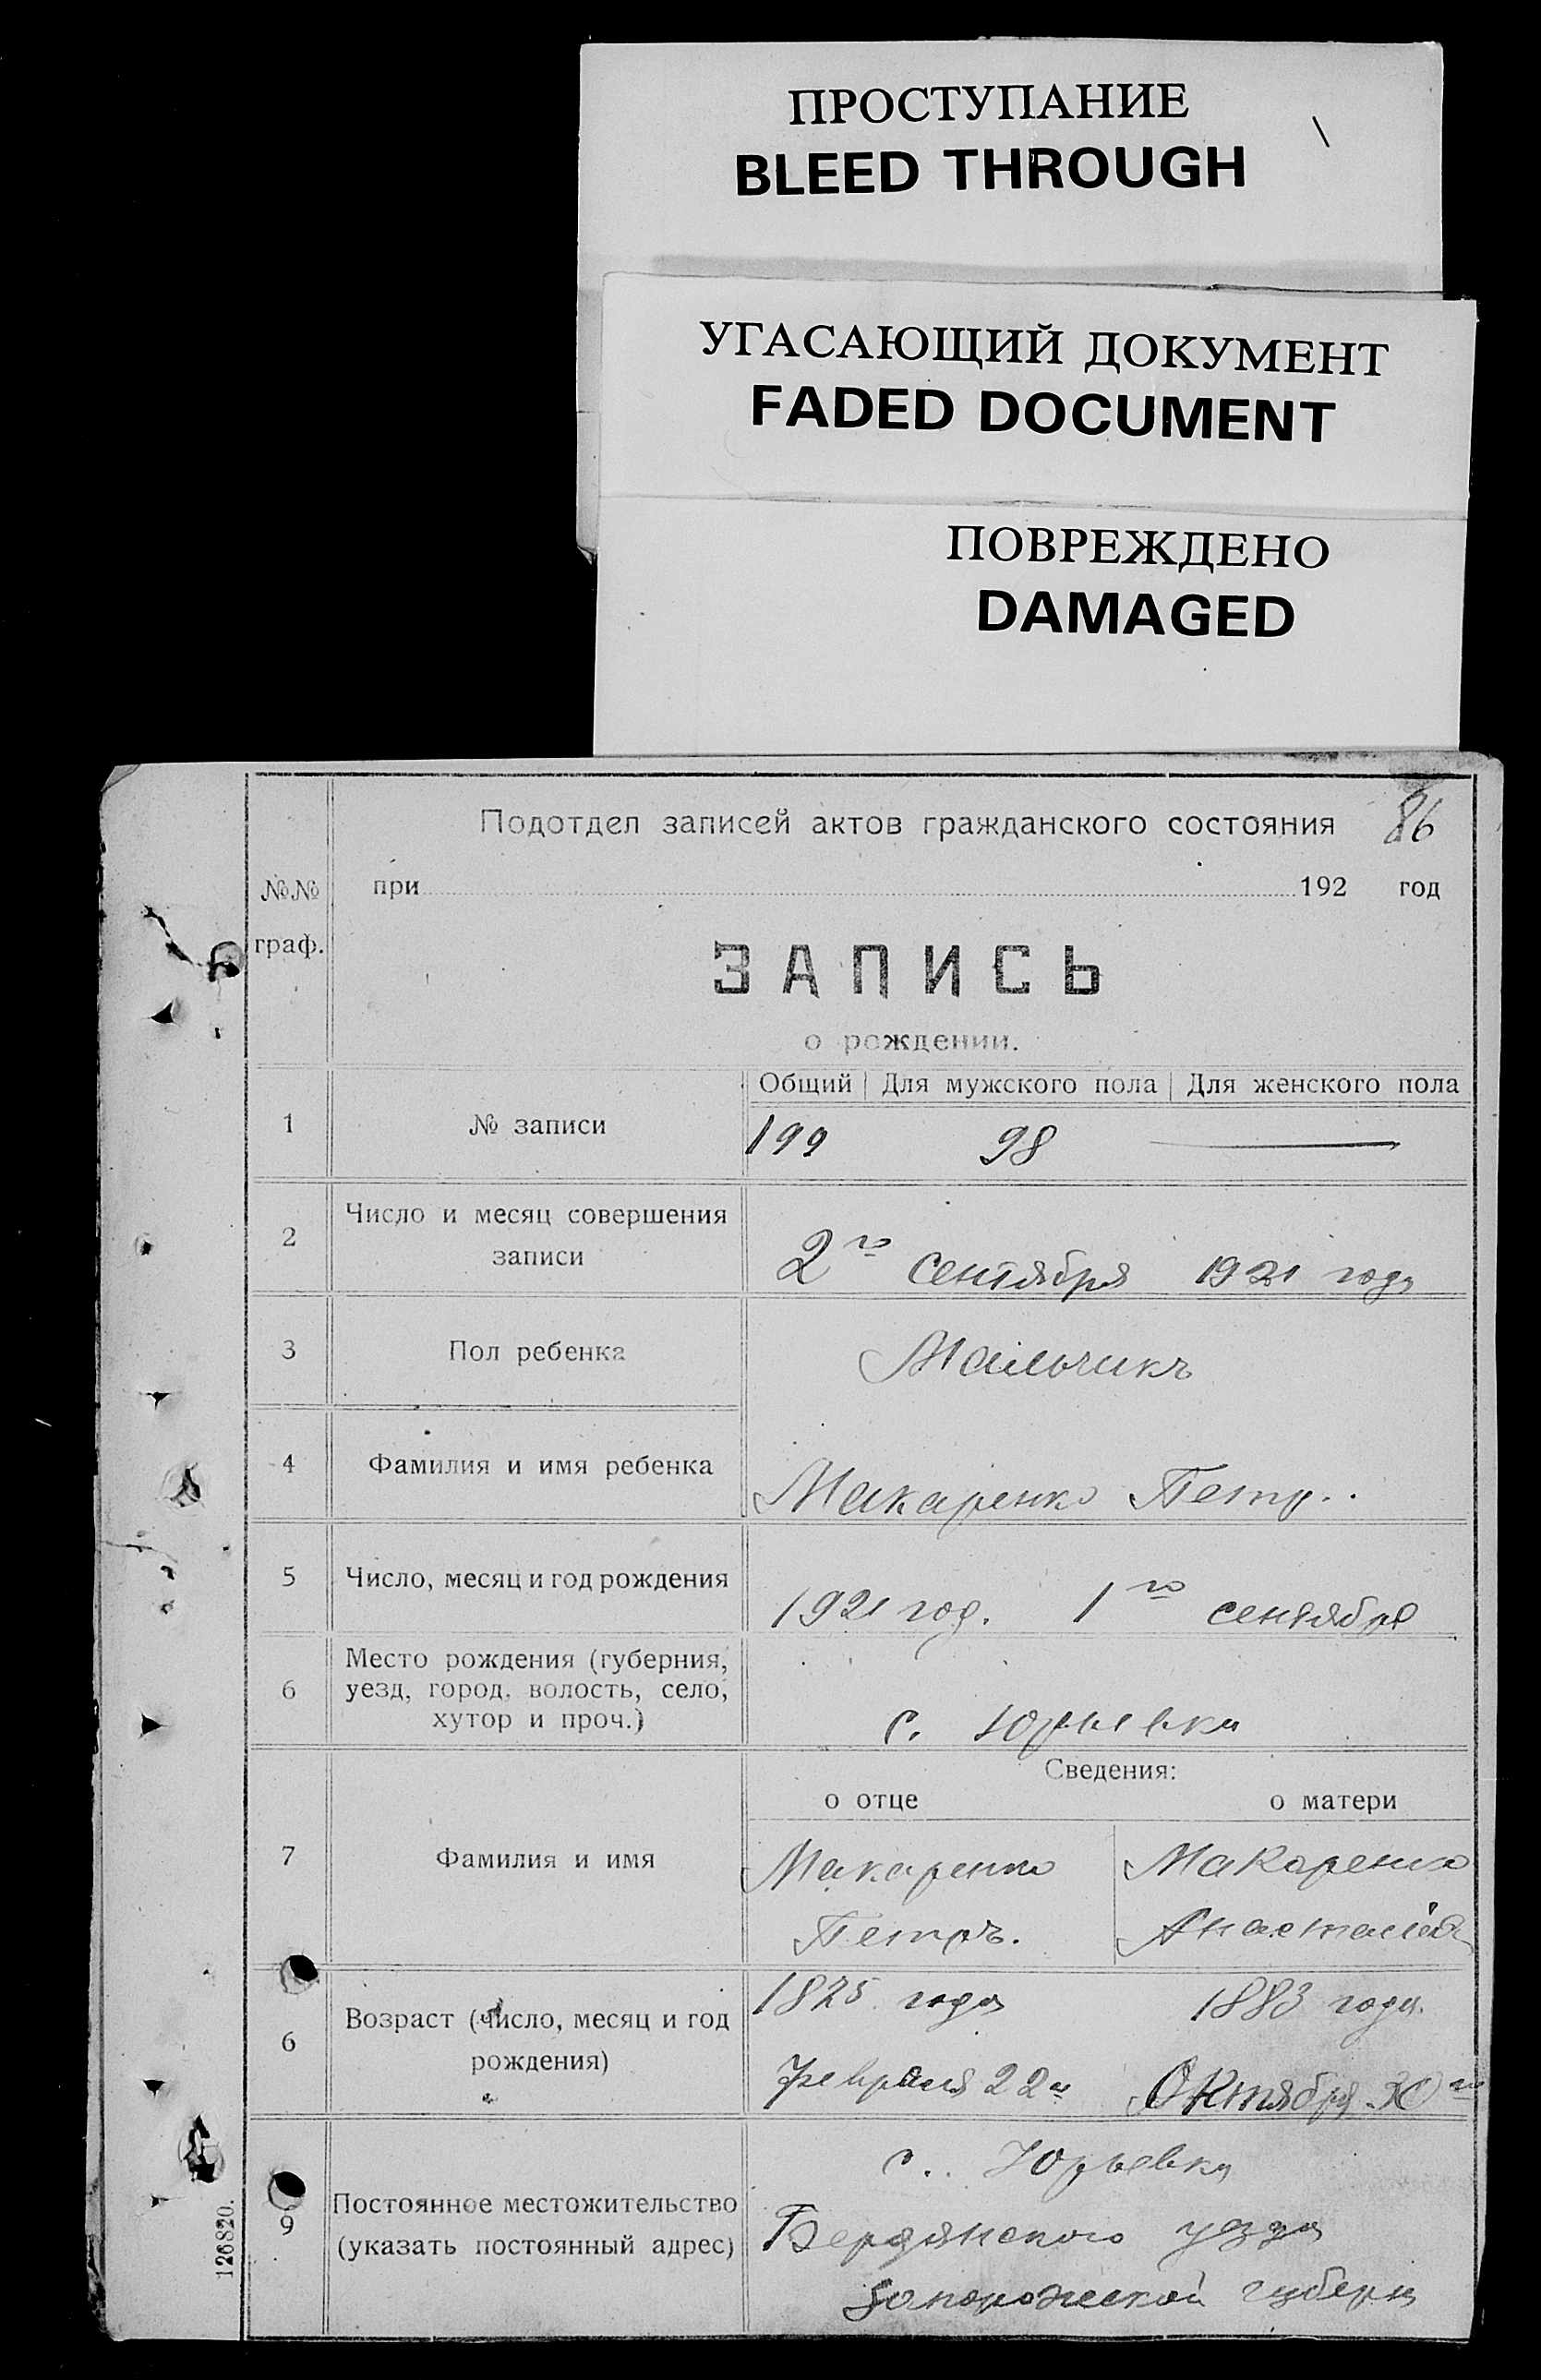 ПРОСТУПАНИЕ
BLEED THROUGH
УГАСАЮЩИЙ ДОКУМЕНТ
FADED DOCUMENT
ПОВРЕЖДЕНО
DAMAGED
Подотдел записей актов гражданского состояния 86
№№ при 192 год
граф.
ЗАПИСЬ
о рождении.
Общий Для мужского пола Для женского пола
1 № записи 199 98
2 Число и месяц совершения
записи
2го сентября 1921 года
3 Пол ребенка Мальчикъ
4 Фамилия и имя ребенка Макаренко Петр.
5 Число, месяц и год рождения 1921 год. 1го сентября
6 Место рождения (губерния,
уезд, город, волость, село,
хутор и проч.)
с. Юрьевка
Сведения:
о отце о матери
7 Фамилия и имя
Макаренко Макаренко
Петръ. Анастасія
6 Возраст (число, месяц и год
рождения)
1825 года 1883 года
февраля 22 Октября 30го
9 Постоянное местожительство
(указать постоянный адрес)
с. Юрьевка
Бердянского уезда
Запорожской губерн
126820.